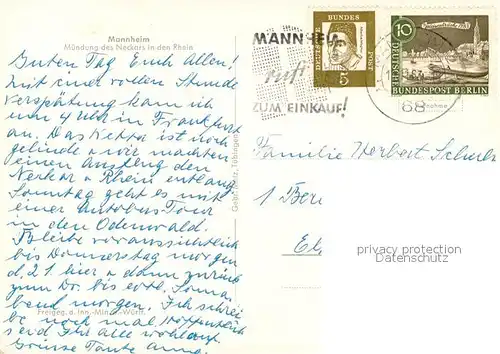 Mannheim
Mündung des Neckars in den Rhein
Guten Tag Euch Allen!
Mit einer vollen Stunde
Verspätung kam ich
um 4 Uhr in Frankfurt
an. Das Wetter ist noch
gelinde u wir machten
einen Ausflug den
Neckar u Rhein entlang
Sonntag geht es mit
einer Autobus Tour
in den Odenwald.
Bleibe voraussichtlich
bis Donnerstag morgen
d. 21 hier u dann zurück
zum Dr. bis evtl. Sonna-
bend morgen. Ich schrei
be noch mal. Hoffentlich
seid Ihr alle wohlauf
Grüsse Tante
Freigeg. d. Inn.-Min. Württ.
Gebr. Metz, Tübingen
MANNHEIM
ruft
ZUM EINKAUF!
DEUTSCHE BUNDESPOST
5
10
DEUTSCHE BUNDESPOST BERLIN
68
Familie Herbert
1 Ber
privacy protection
Datenschutz